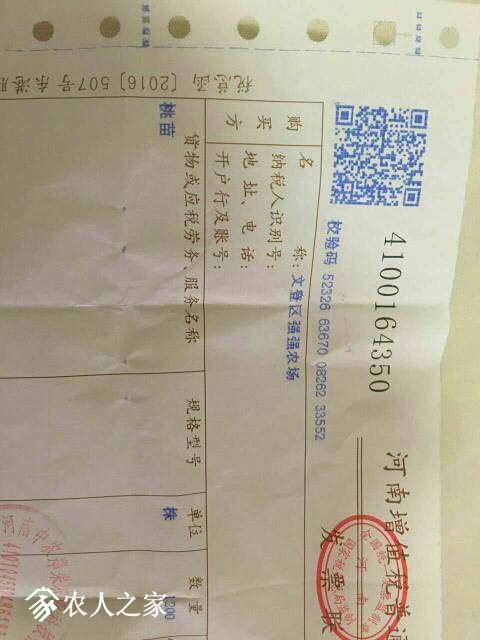 4100164350
河南增值税普
发票联
校验码 52326 63670 08262 33552
购买方
名称：文登区强强农场
纳税人识别号：
地址、电话：
开户行及账号：
货物或应税劳务、服务名称 规格型号 单位 数量
桃苗 株 1200
[2016] 507号
农人之家